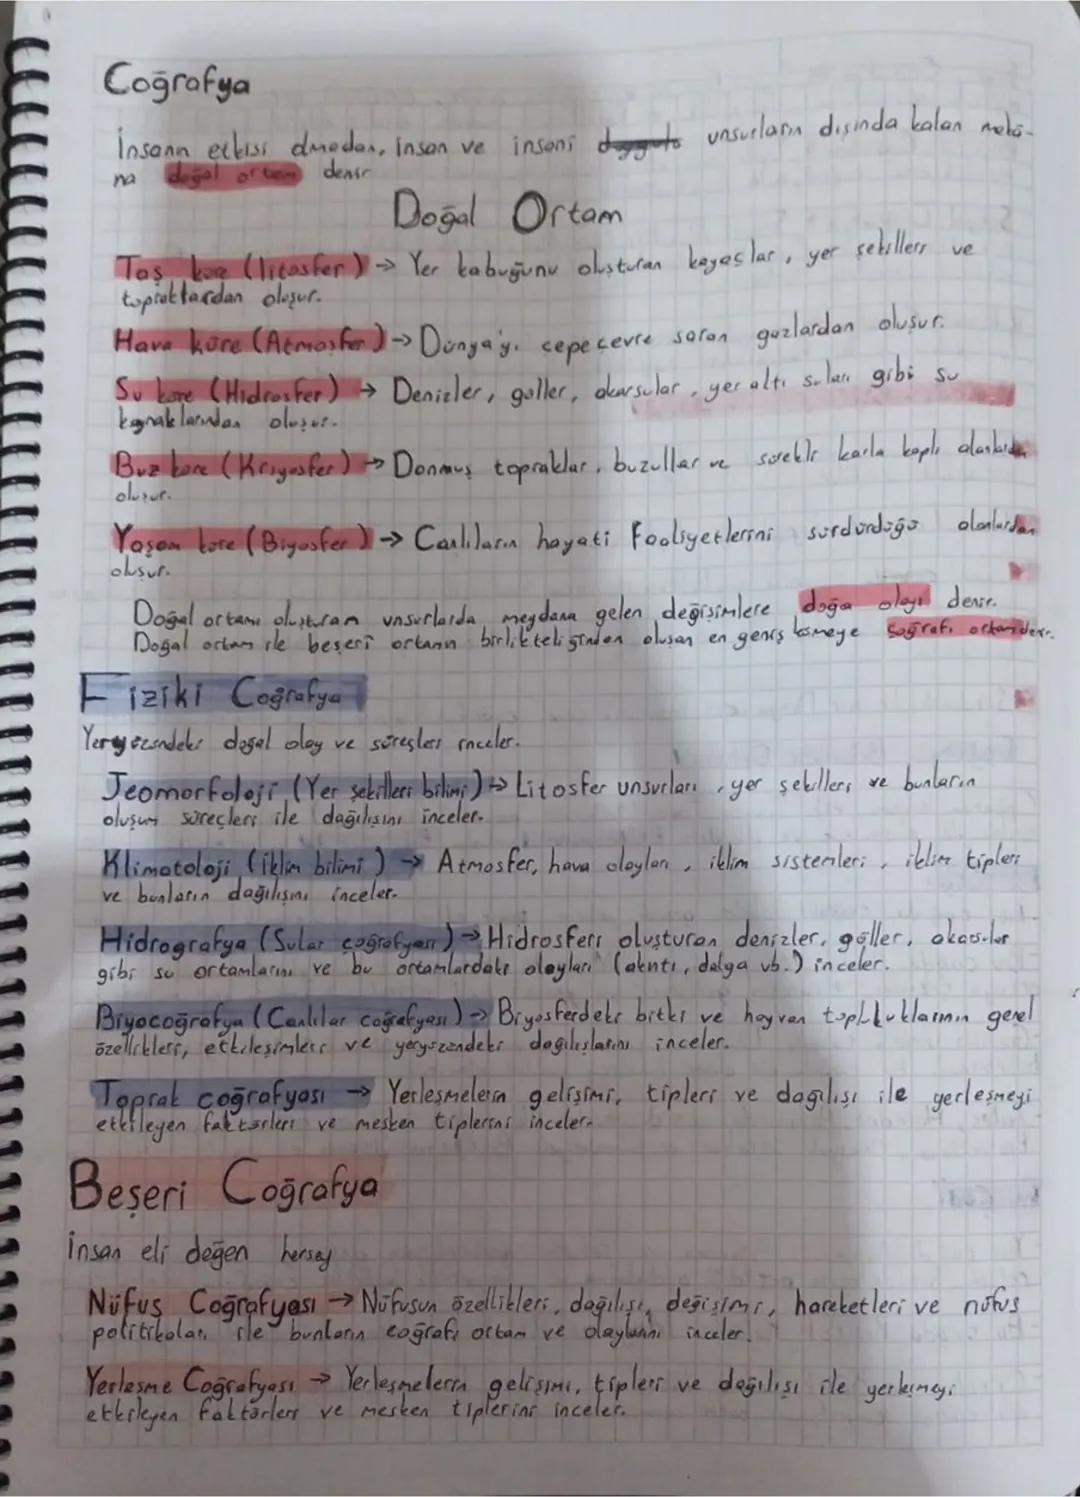 Coğrafya
İnsanın etkisi olmadan, insan ve insani unsurların dışında kalan mekâ-
na doğal ortam denir
Doğal Ortam
Taş küre (litosfer) → Yer kabuğunu oluşturan kayaçlar, yer şekilleri ve
topraklardan oluşur.
Hava küre (Atmosfer) → Dünya'yı çepeçevre saran gazlardan oluşur.
Su küre (Hidrosfer) → Denizler, göller, akarsular, yer altı suları gibi su
kaynaklarından oluşur.
Buz küre (Kriyosfer) → Donmuş topraklar, buzullar ve sürekli karla kaplı alanlardan
oluşur.
Yaşam küre (Biyosfer) → Canlıların hayati faaliyetlerini sürdürdüğü alanlardan
oluşur.
Doğal ortamı oluşturan unsurlarda meydana gelen değişimlere doğa olayı denir.
Doğal ortam ile beşerî ortamın birlikteliğinden oluşan en geniş kısmeye coğrafi ortam denir.
Fiziki Coğrafya
Yeryüzündeki doğal olay ve süreçleri inceler.
Jeomorfoloji (Yer şekilleri bilimi) → Litosfer unsurları, yer şekilleri ve bunların
oluşum süreçleri ile dağılışını inceler.
Klimatoloji (İklim bilimi) → Atmosfer, hava olayları, iklim sistemleri, iklim tipleri
ve bunların dağılışını inceler.
Hidrografya (Sular coğrafyası) → Hidrosferi oluşturan denizler, göller, akarsular
gibi su ortamlarını ve bu ortamlardaki olayları (akıntı, dalga vb.) inceler.
Biyocoğrafya (Canlılar coğrafyası) → Biyosferdeki bitki ve hayvan topluluklarının genel
özellikleri, etkileşimleri ve yeryüzündeki dağılışlarını inceler.
Toprak coğrafyası → Yerleşmelerin gelişimi, tipleri ve dağılışı ile yerleşmeyi
etkileyen faktörleri ve mesken tiplerini inceler.
Beşeri Coğrafya
İnsan eli değen herşey
Nüfus Coğrafyası → Nüfusun özellikleri, dağılışı, değişimi, hareketleri ve nüfus
politikaları ile bunların coğrafi ortam ve olaylarını inceler.
Yerleşme Coğrafyası → Yerleşmelerin gelişimi, tipleri ve dağılışı ile yerleşmeyi
etkileyen faktörleri ve mesken tiplerini inceler.